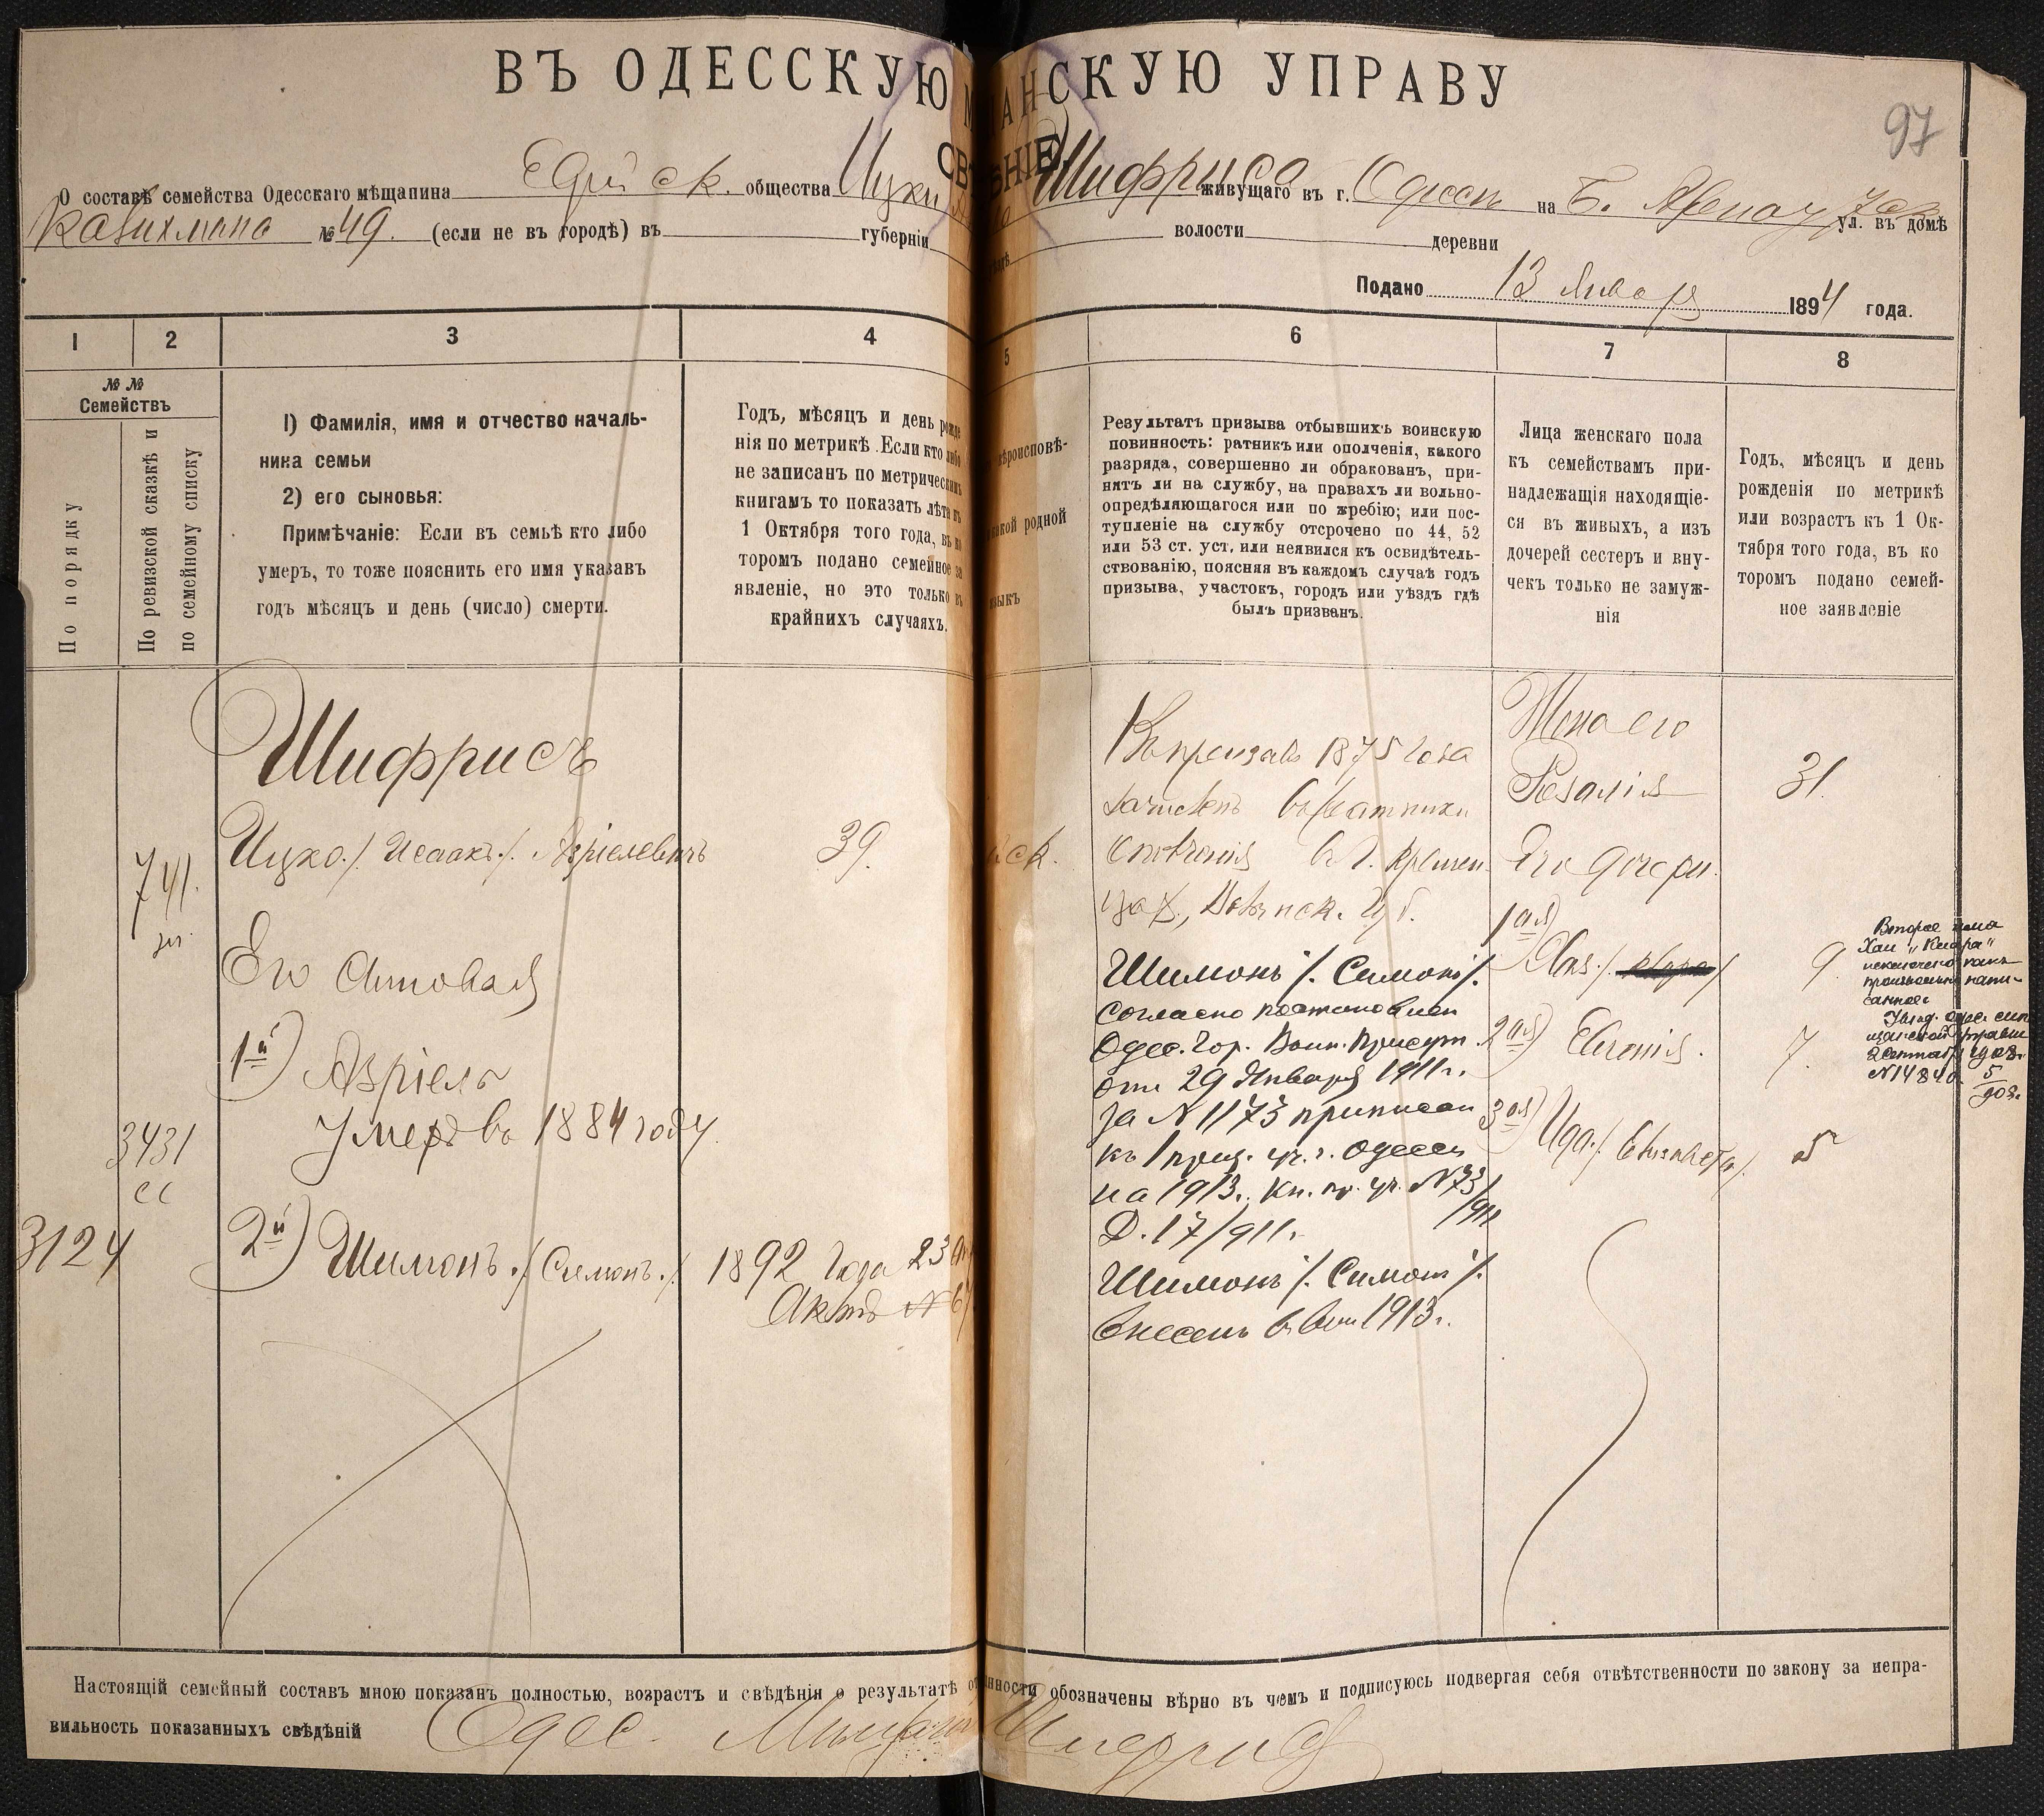 ВЪ ОДЕССКУЮ МѢЩАНСКУЮ УПРАВУ
97
СВѢДѢНІЕ
О составѣ семейства Одесскаго мѣщанина общества Ицки Шифриса живущаго въ г. Одессѣ на Б. ул. въ домѣ
№ 49. (если не въ городѣ) въ губерніи волости деревни
Подано 13 Января 1894 года.
1 2 3 4 5 6 7 8
№ №
Семействъ
По порядку
По ревизской сказкѣ и
по семейному списку
1) Фамилія, имя и отчество началь-
ника семьи
2) его сыновья:
Примѣчаніе: Если въ семьѣ кто либо
умеръ, то тоже пояснить его имя указавъ
годъ мѣсяцъ и день (число) смерти.
Годъ, мѣсяцъ и день рожде
нія по метрикѣ. Если кто либо
не записанъ по метрическимъ
книгамъ то показать лѣта къ
1 Октября того года, въ ко
торомъ подано семейное за
явленіе, но это только въ
крайнихъ случаяхъ.
вѣроисповѣ-
какой родной
языкъ
Результатъ призыва отбывшихъ воинскую
повинность: ратникъ или ополченія, какого
разряда, совершенно ли обракованъ, при-
нятъ ли на службу, на правахъ ли вольно-
опредѣляющагося или по жребію; или пос-
тупленіе на службу отсрочено по 44, 52
или 53 ст. уст. или неявился къ освидѣтель-
ствованію, поясняя въ каждомъ случаѣ годъ
призыва, участокъ, городъ или уѣздъ гдѣ
былъ призванъ.
Лица женскаго пола
къ семействамъ при-
надлежащія находящіе-
ся въ живыхъ, а изъ
дочерей сестеръ и вну-
чекъ только не замуж-
нія
Годъ, мѣсяцъ и день
рожденія по метрикѣ
или возрастъ къ 1 Ок-
тября того года, въ ко
торомъ подано семей-
ное заявленіе
Шифрисъ
Ицко /. Исаакъ./. Азріелевичъ
39.
741.
Его Сыновья
1й) Азріель
Умеръ въ 1884 году.
3431
сс
3124
2й) Шимонъ ./. Симонъ ./.
1892 года 23
Актъ №
Въ призывѣ 1875 года
зачисленъ въ ратники
ополченія въ г. Кремен-
Шимонъ /. Симонъ /.
согласно постановлен
Одес. Гор. Воин. Присут.
отъ 29 Января 1911 г.
за N 1173 приписан
къ 1 приз. уч. г. Одессы
на 1913 г. Кн. пр. уч. N 73
/911
Д. 17/911 г.
Шимонъ /. Симонъ /.
внесенъ въ 1913 г.
Жена его
Розалія
31.
Его дочери.
1ая) Хая./. Клара/
9.
2ая)
7.
3ая) Ида./. Елизавета/.
5
Второе имя
Хаи „Клара"
исключено какъ
произвольно напи-
санное
2 Сентяб. 1903 г.
N 14840
Настоящій семейный составъ мною показанъ полностью, возрастъ и свѣдѣнія о результатѣ обозначены вѣрно въ чемъ и подписуюсь подвергая себя отвѣтственности по закону за непра-
вильность показанныхъ свѣдѣній Одес. Мѣщанинъ Шифрисъ